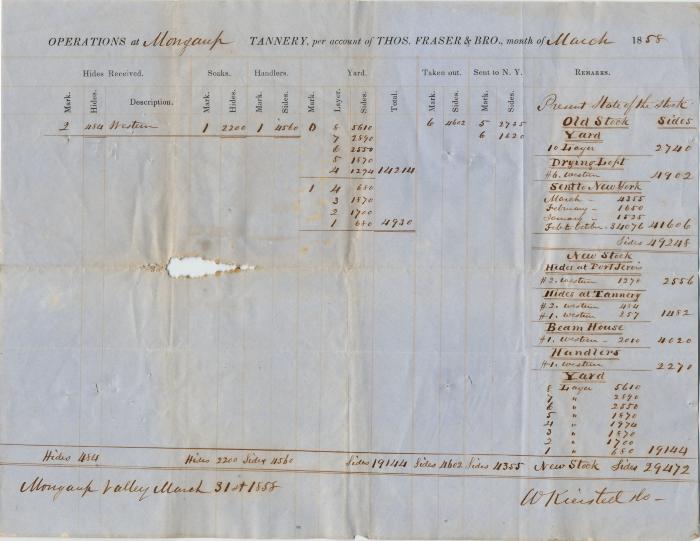 OPERATIONS at Mongaup TANNERY, per account of THOS. FRASER & BRO., month of March 1858
Hides Received. Soaks. Handlers. Yard. Taken out. Sent to N. Y. REMARKS.
Mark. Hides. Description. Mark. Hides. Mark. Sides. Mark. Layer. Sides. Total. Mark. Sides. Mark. Sides.
2 484 Western 1 2200 1 4560 0 8 5610 6 4602 5 2735
7 2890 6 1620
6 2550
5 1870
4 1294 14214
1 4 680
3 1870
2 1700
1 680 4930
Present State of the Stock
Old Stock Sides
Yard
10 Layer 2740
Drying Loft
#6. Western 4902
Sent to New York
March - 4355
February - 1650
January - 1525
Feb to October. 34076 41606
Sides 49248
New Stock
Hides at Port Jervis
#2. Western 1278 2556
Hides at Tannery
#2. Western 484
#1. Western 257 1482
Beam House
#1. Western - 2010 4020
Handlers
#1. Western 2270
Yard
8 Layer 5610
7 " 2890
6 " 2550
5 " 1870
4 " 1974
3 " 1870
2 " 1700
1 " 680 19144
Hides 484 Hides 2200 Sides 4560 Sides 19144 Sides 4602 Sides 4355 New Stock Sides 29472
Mongaup Valley March 31st 1858 W Kiersted